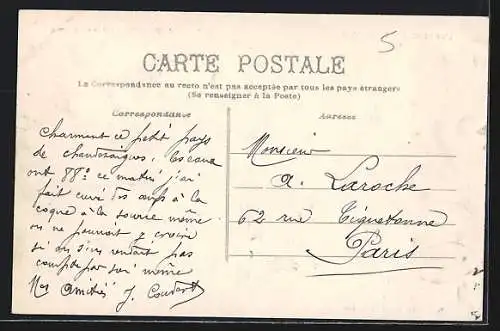 5
CARTE POSTALE
La Correspondance au recto n'est pas acceptée par tous les pays étrangers
(Se renseigner à la Poste)
Correspondance
Adresse
Charmant ce petit pays
de chaudesaigues. Les eaux
ont 88° ce matin j'ai
fait cuire les œufs à la
coque à la source même
on ne pourrait y croire
si on s'en rendait pas
compte par soi même
Mes amitiés J.
Monsieur
A. Laroche
62 rue Tiquetonne
Paris